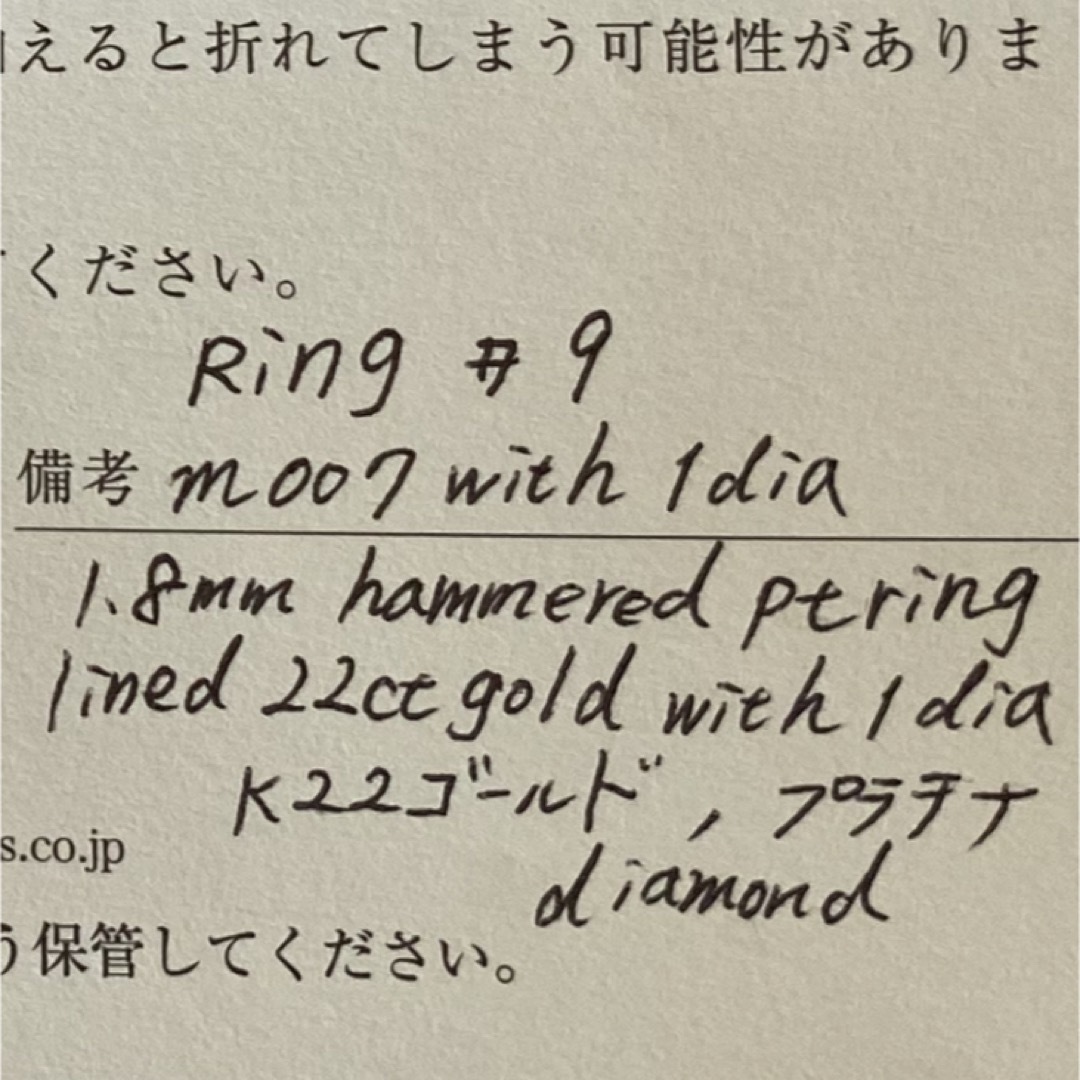 えると折れてしまう可能性がありま
ください。
Ring #9
備考 m007 with 1dia
1.8mm hammered pt ring
lined 22ct gold with 1 dia
K22ゴールド, プラチナ
s.co.jp
diamond
う保管してください。